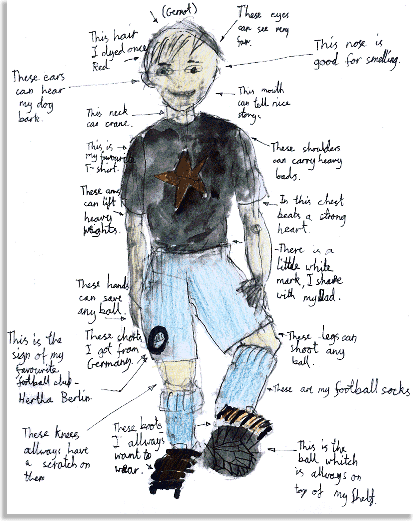 (Gernot)
This hair
I dyed once
Red.
These eyes
can see very
far.
This nose is
good for smelling.
These ears
can hear
my dog
bark.
This mouth
can tell nice
storys.
This neck
can crane.
This is
my favourite
T-shirt.
These shoulders
can carry heavy
loads.
These arms
can lift
heavy
weights.
In this chest
beats a strong
heart.
There is a
little white
mark, I share
with my Dad.
These hands
can save
any ball.
These shorts
I got from
Germany.
This is the
sign of my
favourite
football club-
Hertha Berlin.
These legs can
shoot any
ball.
These are my football socks
These knees
allways have
a scratch on
them
These boots
I allways
want to
wear.
This is the
ball whitch
is allways on
top of my shelf.